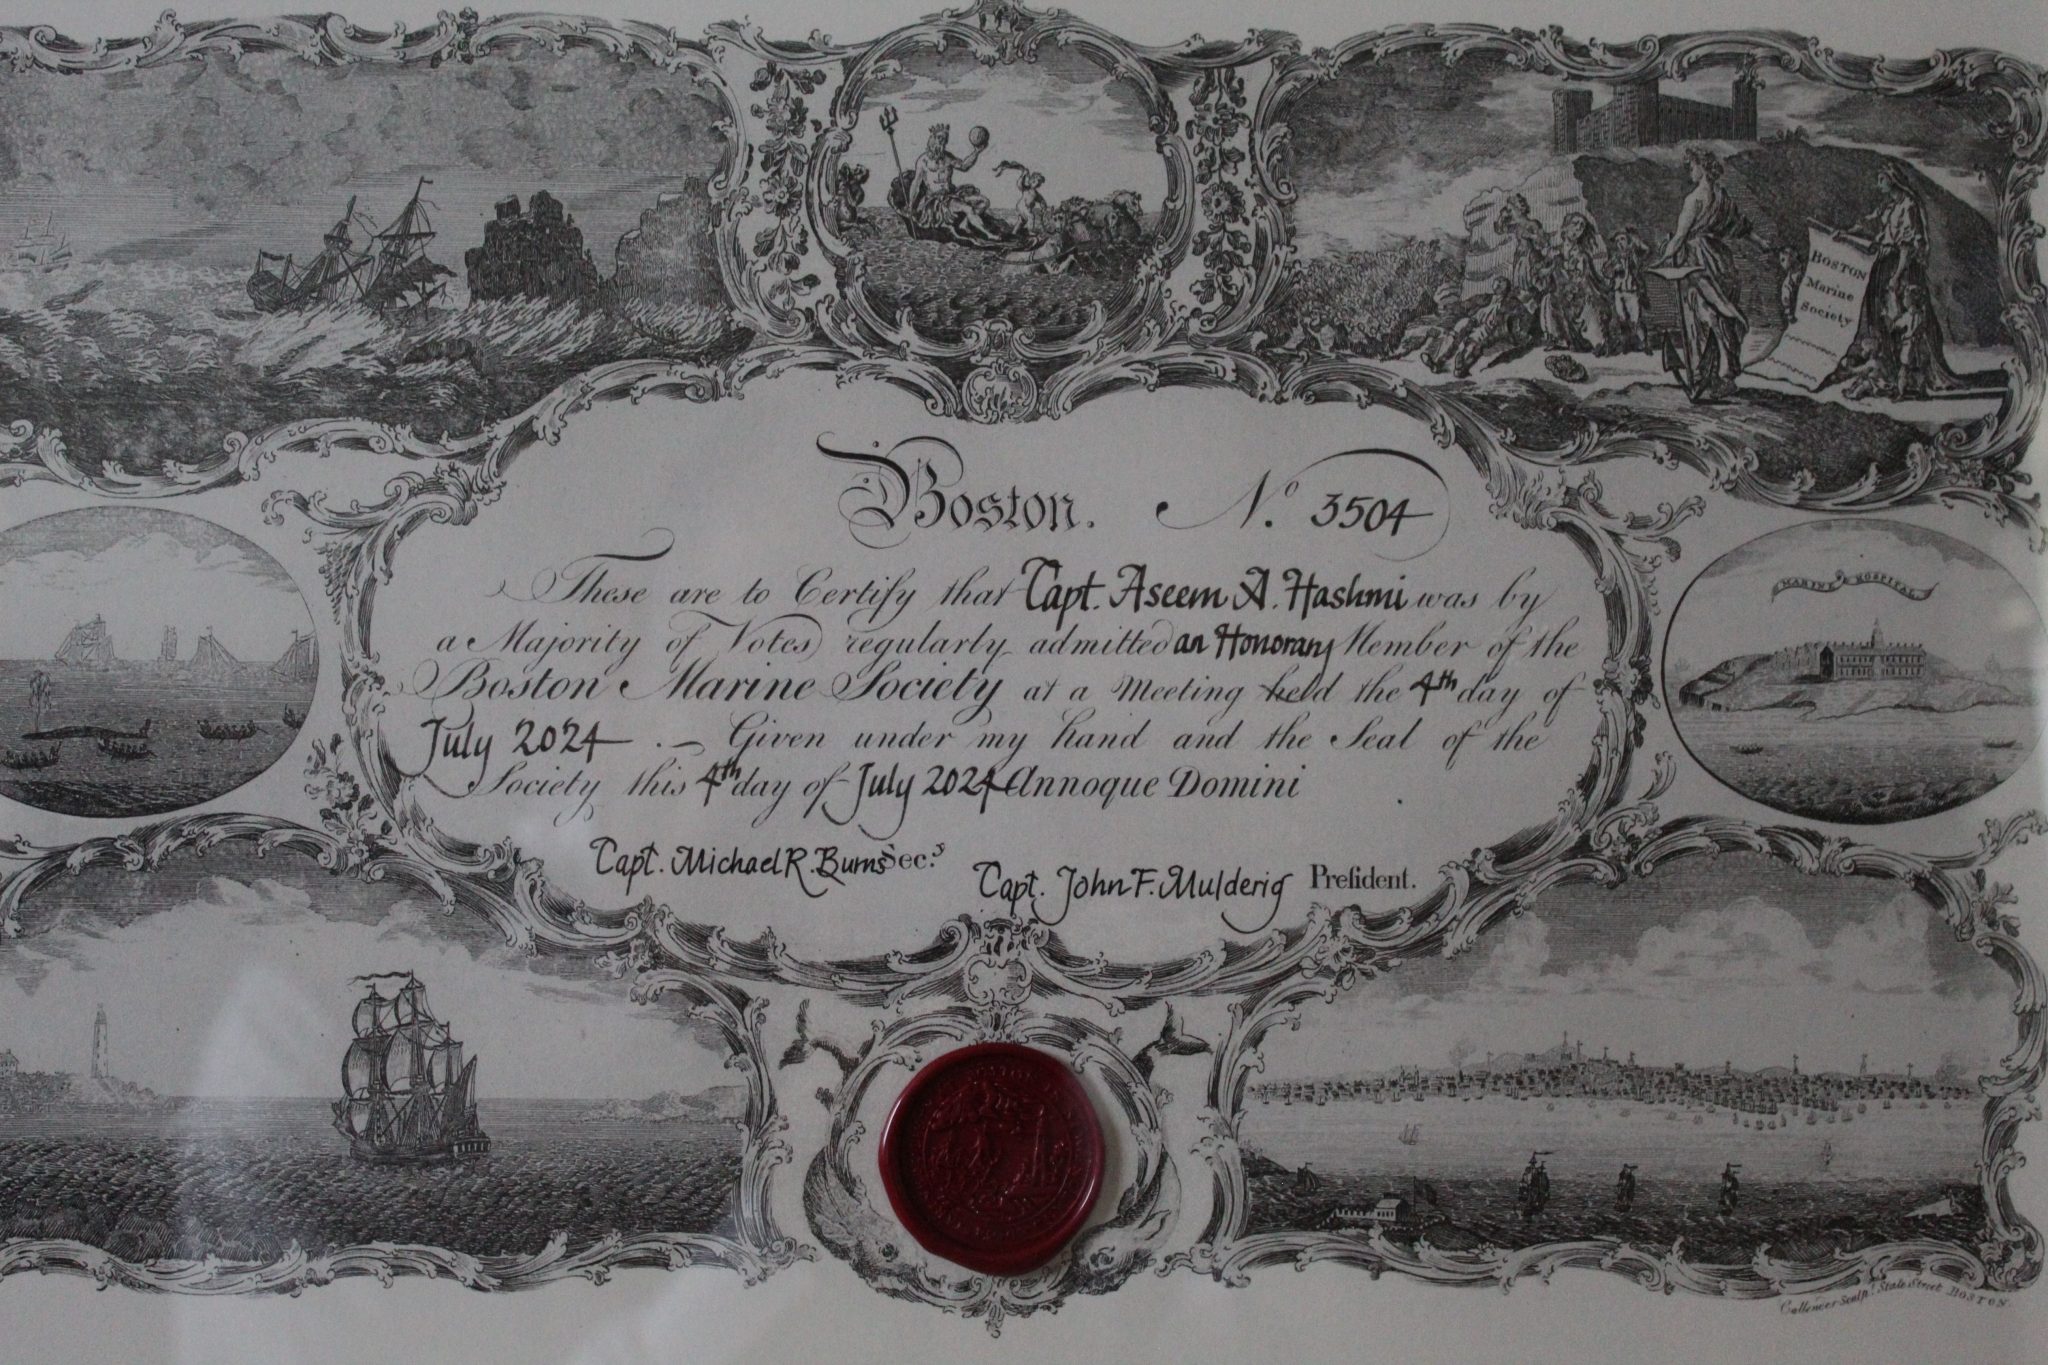 BOSTON
Marine
Society
Boston. No. 3504
MARINE HOSPITAL
These are to Certify that Capt. Aseem A. Hashmi was by
a Majority of Votes regularly admitted an Honorary Member of the
Boston Marine Society at a Meeting held the 4th day of
July 2024 . — Given under my hand and the Seal of the
Society this 4th day of July 2024 Annoque Domini
Capt. Michael R. Burns Secy
Capt. John F. Mulderig Preſident.
Callender Sculpt State Street BOSTON.